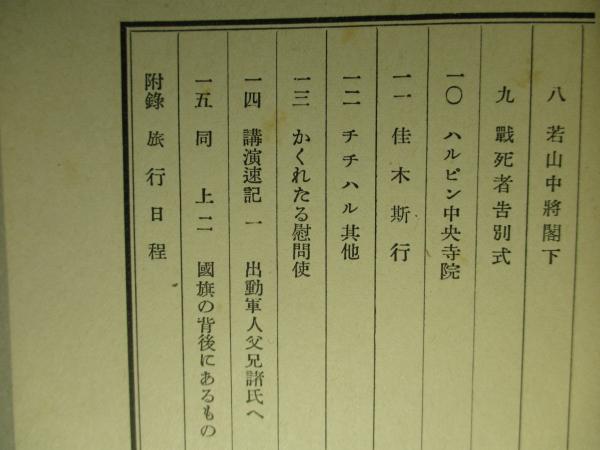 八 若山中將閣下
九 戰死者吿別式
一〇 ハルピン中央寺院
一一 佳木斯行
一二 チチハル其他
一三 かくれたる慰問使
一四 講演速記 一 出動軍人父兄諸氏へ
一五 同上二 國旗の背後にあるもの
附錄 旅行日程